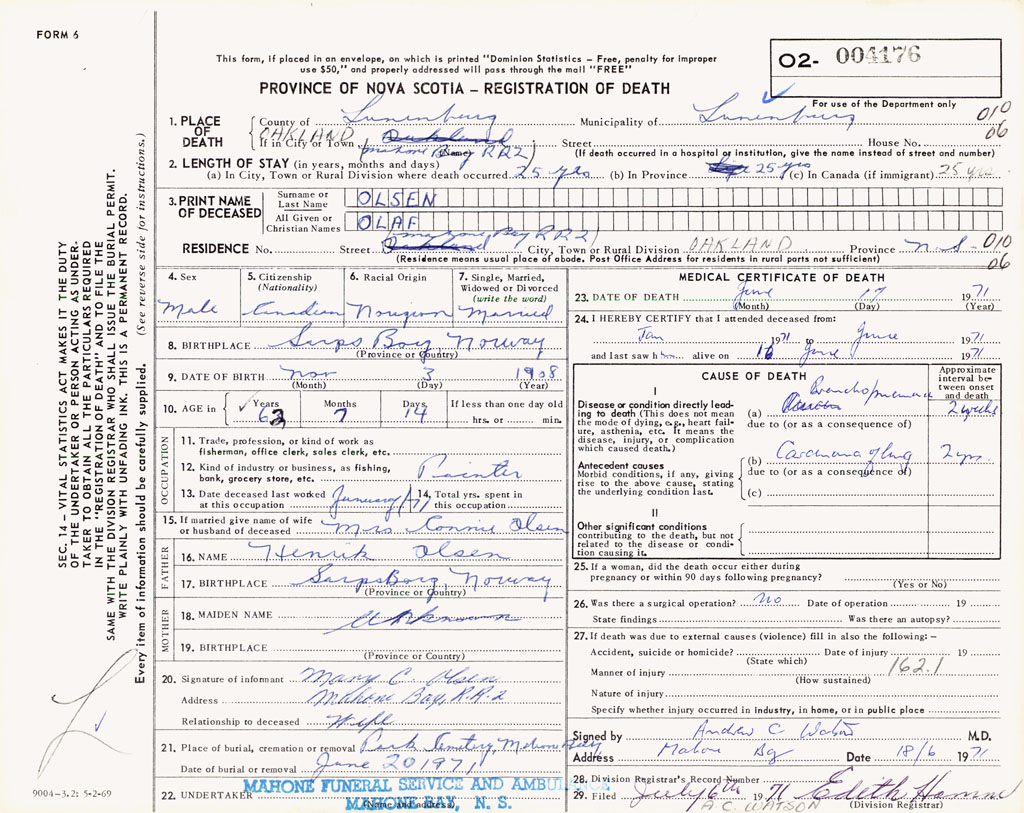 FORM 6
This form, if placed in an envelope, on which is printed "Dominion Statistics – Free, penalty for improper
use $50," and properly addressed will pass through the mail "FREE"
O2- 004176
PROVINCE OF NOVA SCOTIA – REGISTRATION OF DEATH
For use of the Department only
1. PLACE OF DEATH County of Lunenburg Municipality of Lunenburg 010
OAKLAND If in City or Town Oakland Street House No. 06
Mahone Bay RR2 (Name) (If death occurred in a hospital or institution, give the name instead of street and number)
2. LENGTH OF STAY (in years, months and days)
(a) In City, Town or Rural Division where death occurred 25 yrs (b) In Province 25 yrs (c) In Canada (if immigrant) 25 yrs
3. PRINT NAME OF DECEASED Surname or Last Name OLSEN
All Given or Christian Names OLAF
Mahone Bay RR2
RESIDENCE No. Street Oakland City, Town or Rural Division OAKLAND Province N.S- 010
(Residence means usual place of abode. Post Office Address for residents in rural parts not sufficient) 06
4. Sex 5. Citizenship (Nationality) 6. Racial Origin 7. Single, Married, Widowed or Divorced (write the word)
Male Canadian Norgwon Married
8. BIRTHPLACE Sarps Borg Norway
(Province or Country)
9. DATE OF BIRTH Nov 3 1908
(Month) (Day) (Year)
10. AGE in Years Months Days If less than one day old
62 7 14 hrs. or min.
OCCUPATION
11. Trade, profession, or kind of work as
fisherman, office clerk, sales clerk, etc.
12. Kind of industry or business, as fishing,
bank, grocery store, etc. Painter
13. Date deceased last worked at this occupation January/71 14. Total yrs. spent in this occupation
15. If married give name of wife
or husband of deceased Mrs Connie Olsen
FATHER
16. NAME Henrik Olsen
17. BIRTHPLACE SarpsBorg Norway
(Province or Country)
MOTHER
18. MAIDEN NAME Unknown
19. BIRTHPLACE
(Province or Country)
20. Signature of informant Mary C. Olsen
Address Mahone Bay, R.R.2
Relationship to deceased Wife
21. Place of burial, cremation or removal Park Cemetery, Mahone Bay
Date of burial or removal June 20 1971
22. UNDERTAKER MAHONE FUNERAL SERVICE AND AMBULANCE
(Name and address)
MAHONE BAY, N. S.
MEDICAL CERTIFICATE OF DEATH
23. DATE OF DEATH June 17 1971
(Month) (Day) (Year)
24. I HEREBY CERTIFY that I attended deceased from:
Jan 1971 to June 1971
and last saw him alive on 16 June 1971
CAUSE OF DEATH
Approximate interval between onset and death
I
Disease or condition directly leading to death (This does not mean the mode of dying, e.g., heart failure, asthenia, etc. It means the disease, injury, or complication which caused death.)
(a) Bronchopneumonia 2 weeks
due to (or as a consequence of)
Antecedent causes
Morbid conditions, if any, giving rise to the above cause, stating the underlying condition last.
(b) Carcinoma of lung 2 yrs
due to (or as a consequence of)
(c)
II
Other significant conditions
contributing to the death, but not
related to the disease or condition causing it.
25. If a woman, did the death occur either during
pregnancy or within 90 days following pregnancy?
(Yes or No)
26. Was there a surgical operation? No Date of operation 19
State findings Was there an autopsy?
27. If death was due to external causes (violence) fill in also the following: –
Accident, suicide or homicide? Date of injury 19
(State which)
Manner of injury 162.1
(How sustained)
Nature of injury
Specify whether injury occurred in industry, in home, or in public place
Signed by Andrew C Watson M.D.
Address Mahone Bay Date 18/6 1971
28. Division Registrar's Record Number
29. Filed July 6th 1971
A.C. WATSON
(Division Registrar)
SEC. 14 – VITAL STATISTICS ACT MAKES IT THE DUTY
OF THE UNDERTAKER OR PERSON ACTING AS UNDER-
TAKER TO OBTAIN ALL THE PARTICULARS REQUIRED
IN THE "REGISTRATION OF DEATH" AND TO FILE THE
SAME WITH THE DIVISION REGISTRAR WHO SHALL ISSUE THE BURIAL PERMIT.
WRITE PLAINLY WITH UNFADING INK. THIS IS A PERMANENT RECORD.
Every item of information should be carefully supplied. (See reverse side for instructions.)
9004-3.2: 5-2-69